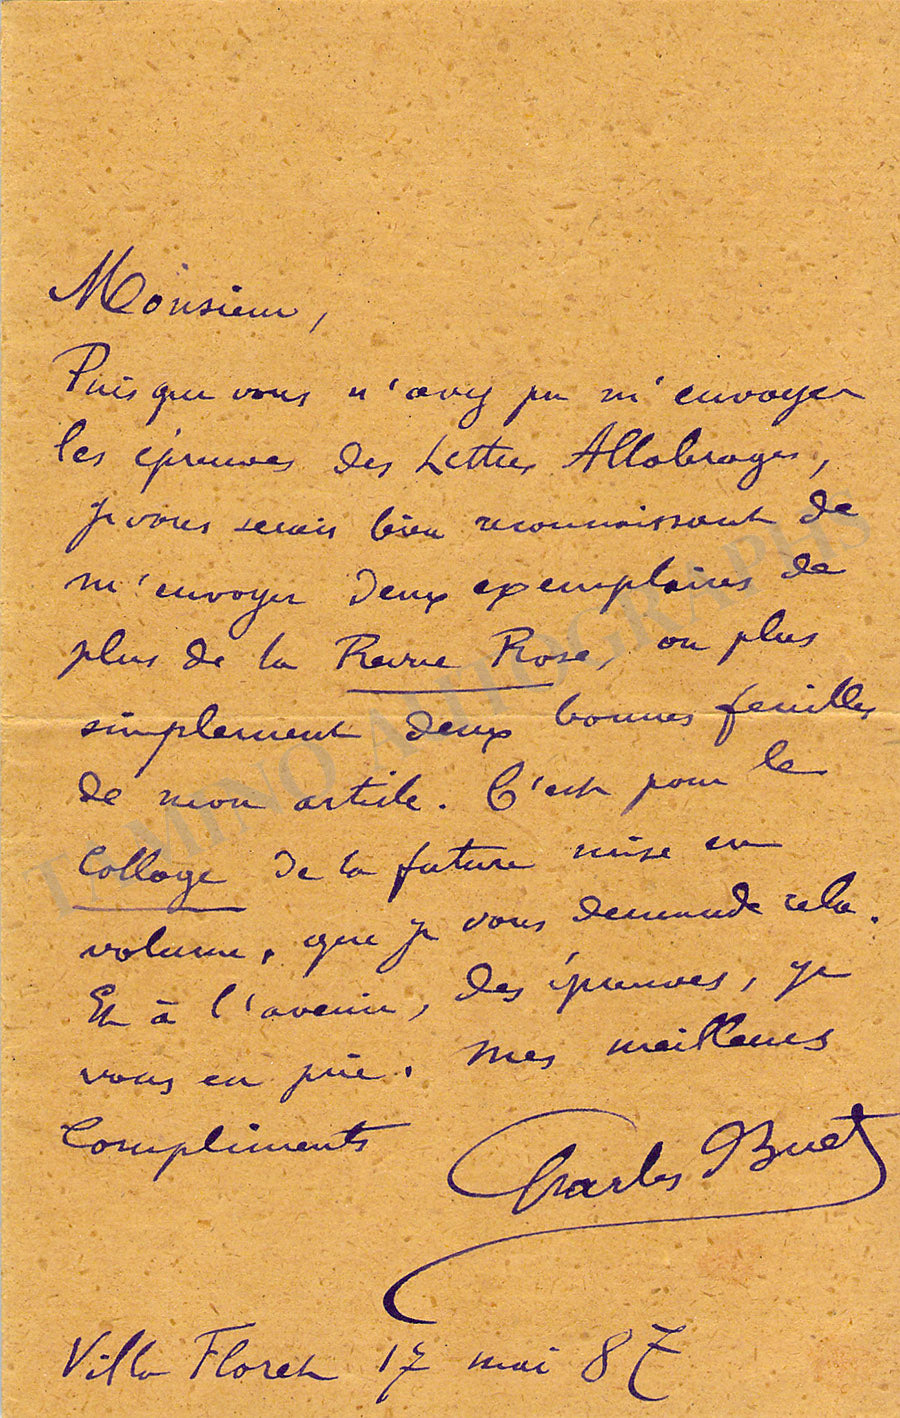 Monsieur,
Puisque vous n'avez pu m'envoyer
les épreuves des Lettres Allobroges,
je vous serais bien reconnaissant de
m'envoyer deux exemplaires de
plus de la Revue Rose, ou plus
simplement deux bonnes feuilles
de mon article. C'est pour le
collage de la future mise en
volume, que je vous demande cela.
Et à l'avenir, des épreuves, je
vous en prie. Mes meilleurs
compliments
Charles Buet
Villa Floret 17 mai 87
TAMINO AUTOGRAPHS